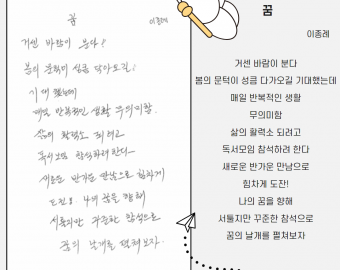 꿈
이종례
거센 바람이 분다!
봄의 문턱이 성큼 다가오길
기대했는데
매일 반복적인 생활 무의미함
삶의 활력소 되려고
독서모임 참석하려 한다
새로운 반가운 만남으로 힘차게
도전! 나의 꿈을 향해
서툴지만 꾸준한 참석으로
꿈의 날개를 펼쳐보자
꿈
이종례
거센 바람이 분다
봄의 문턱이 성큼 다가오길 기대했는데
매일 반복적인 생활
무의미함
삶의 활력소 되려고
독서모임 참석하려 한다
새로운 반가운 만남으로
힘차게 도전!
나의 꿈을 향해
서툴지만 꾸준한 참석으로
꿈의 날개를 펼쳐보자